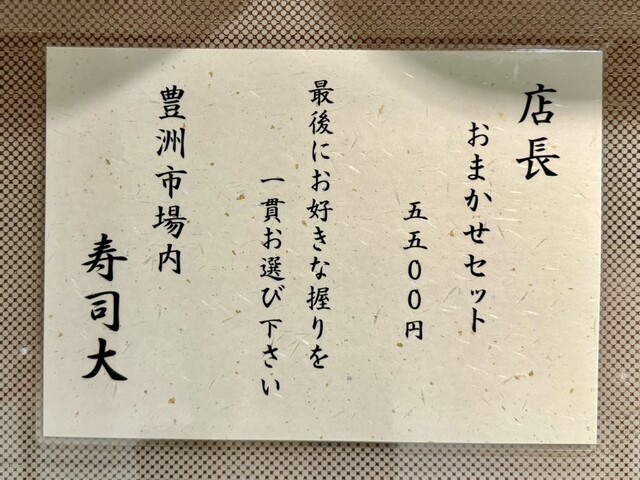 店長
おまかせセット
五五００円
最後にお好きな握りを
一貫お選び下さい
豊洲市場内
寿司大